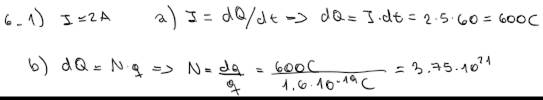 6-1) I=2A a) I = dQ/dt => dQ = I.dt = 2.5.60 = 600C
b) dQ = N.q => N = dq/q = 600C/1,6.10^-19C = 3,75.10^21